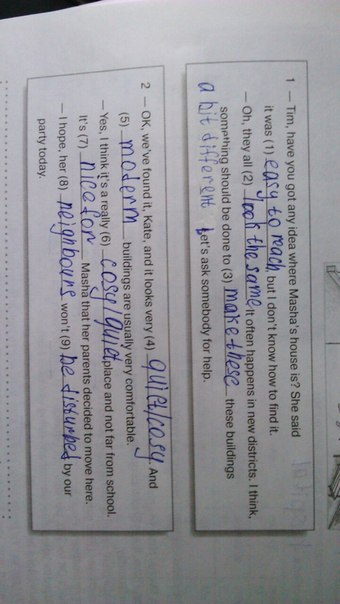 1 — Tim, have you got any idea where Masha's house is? She said
it was (1) easy to reach but I don't know how to find it.
— Oh, they all (2) look the same It often happens in new districts. I think,
something should be done to (3) make these these buildings
a bit different Let's ask somebody for help.
2 — OK, we've found it, Kate, and it looks very (4) quiet/cosy. And
(5) moderm buildings are usually very comfortable.
— Yes, I think it's a really (6) cosy/quiet place and not far from school.
It's (7) nice for Masha that her parents decided to move here.
— I hope, her (8) neighbours won't (9) be disturbed by our
party today.